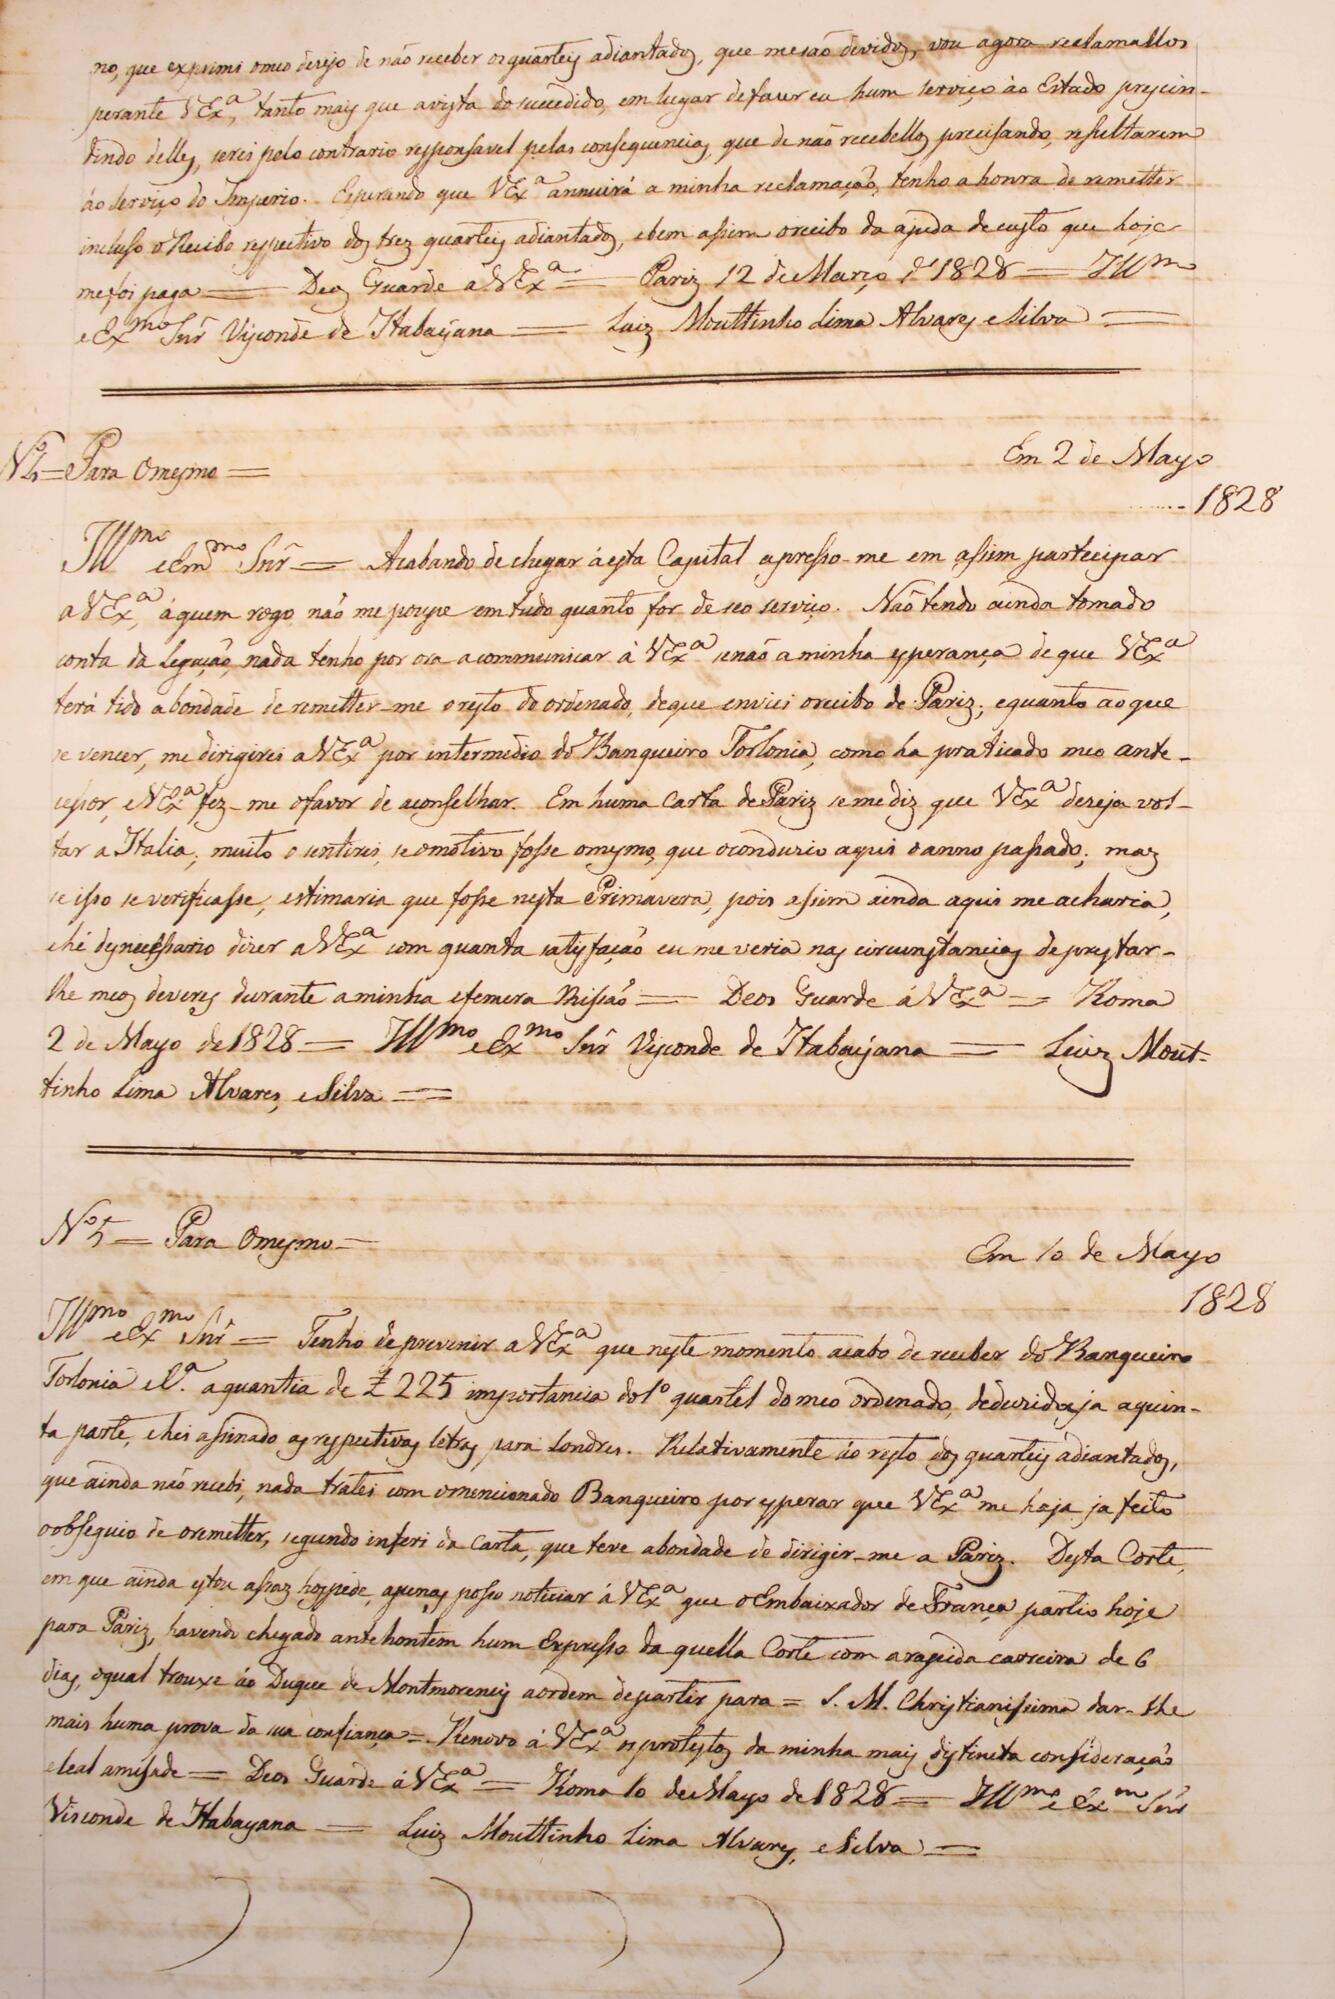 no, que exprimi o meo desejo de não receber os quarteis adiantados, que me são devidos, vou agora reclamallos
perante VEx.ª, tanto mais que a vista do succedido, em lugar de fazer eu hum serviço áo Estado prescin-
dindo delles, serei pelo contrario responsavel pelas consequencias, que de não recebellos precisando, resultarem
áo Serviço do Imperio. Esperando que VEx.ª annuirá a minha reclamação, tenho a honra de remetter
incluso o Recibo respectivo dos trez quarteis adiantados, e bem assim o recibo da ajuda de custo que hoje
me foi paga = Deos Guarde á VEx.ª = Pariz 12 de Março d' 1828 = Ill.mo
e Ex.mo Snr̃ Visconde de Itabayana = Luiz Mouttinho Lima Alvares e Silva =
Nº 4 = Para O mesmo = Em 2 de Mayo
1828
Ill.mo e Exm.mo Snr̃ = Acabando de chegar á esta Capital apresso-me em assim partecipar
a VEx.ª, á quem rogo não me poupe em tudo quanto for de seo serviço. Não tendo ainda tomado
conta da Legação, nada tenho por ora a communicar á VEx.ª senão a minha esperança de que VEx.ª
terá tido a bondade de remetter-me o resto do ordenado, de que enviei o recibo de Pariz; e quanto ao que
se vencer, me dirigirei a VEx.ª por intermedio do Banqueiro Torlonia, como ha praticado meo ante-
cessor, e VEx.ª fez-me o favor de aconselhar. Em huma Carta de Pariz se me diz que VEx.ª deseja vol-
tar a Italia; muito o sentirei, se o motivo fosse o mesmo, que o conduzio aqui o anno passado; mas
se isso se verificasse, estimaria que fosse nesta Primavera, pois assim ainda aqui me acharia,
e hé desnecessario dizer a VEx.ª com quanta satisfação eu me veria nas circunstancias de prestar-
lhe meos deveres durante a minha efemera Missão = Deos Guarde á VEx.ª = Roma
2 de Mayo de 1828 = Ill.mo e Ex.mo Snr̃ Visconde de Itabayana = Luiz Mout-
tinho Lima Alvares, e Silva =
Nº 5 = Para O mesmo = Em 10 de Mayo
1828
Ill.mo e Ex.mo Snr̃ = Tenho de prevenir a VEx.ª que neste momento acabo de receber do Banqueiro
Torlonia e C.ª a quantia de £ 225 importancia do 1º quartel do meo ordenado, deduzida ja a quin-
ta parte, e hei assinado as respectivas letras para Londres. Relativamente áo resto dos quarteis adiantados,
que ainda não recebi, nada tratei com o mencionado Banqueiro por esperar que VEx.ª me haja ja feito
o obsequio de o remetter, segundo inferi da Carta, que teve a bondade de dirigir-me a Pariz. Desta Corte,
em que ainda estou assaz hospede, apenas posso noticiar á VEx.ª que o Embaixador de França partio hoje
para Pariz, havendo chegado antehontem hum Expresso da quella Corte com a rapida carreira de 6
dias, o qual trouxe áo Duque de Montmorency a ordem de partir para = S. M. Christianissima dar-lhe
mais huma prova da sua confiança =. Renovo á VEx.ª os protestos da minha mais distincta consideração
e leal amisade = Deos Guarde á VEx.ª = Roma 10 de Mayo de 1828 = Ill.mo e Ex.mo Snr̃
Visconde de Itabayana = Luiz Mouttinho Lima Alvares, e Silva =